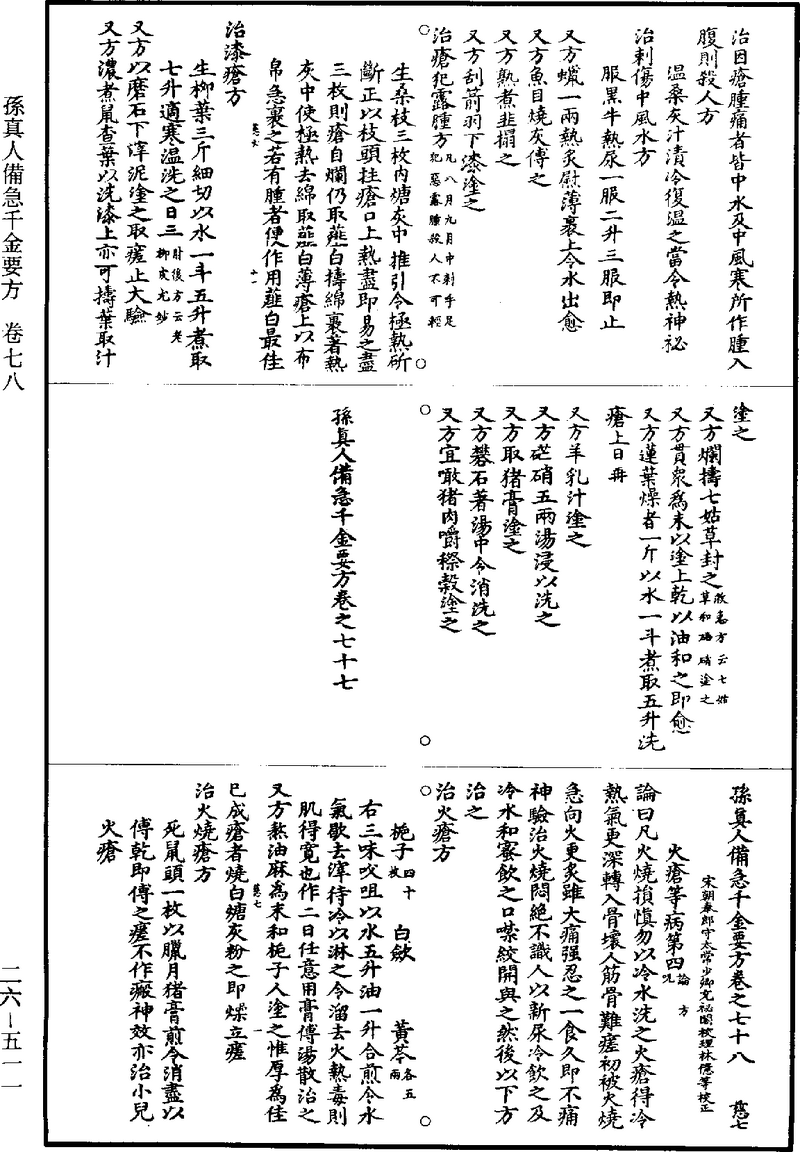 治因瘡腫痛者皆中水及中風寒所作腫入
腹則殺人方
溫桑灰汁漬冷復溫之當令熱神祕
治刺傷中風水方
服黑牛熱尿一服二升三服即止
又方蠟一兩熱炙熨薄裹上令水出愈
又方魚目燒灰傅之
又方熟煮韭搨之
又方刮箭羽下漆塗之
治瘡犯露腫方凡八月九月中刺手足犯惡露腫殺人不可輕
生桑枝三枚內煻灰中推引令極熱斫
斷正以枝頭拄瘡口上熱盡即易之盡
三枚則瘡自爛仍取薤白擣綿裹著熱
灰中使極熱去綿取薤白薄瘡上以布
帛急裹之若有腫者便作用薤白最佳
治漆瘡方
生柳葉三斤細切以水一斗五升煮取
七升適寒溫洗之日三肘後方云老柳皮尤妙
又方以磨石下滓泥塗之取瘥止大驗
又方濃煮鼠查葉以洗漆上亦可擣葉取汁
塗之
又方爛擣七姑草封之救急方云七姑草和芒硝塗之
又方貫眾為末以塗上乾以油和之即愈
又方蓮葉燥者一斤以水一斗煮取五升洗
瘡上日再
又方羊乳汁塗之
又方芒硝五兩湯浸以洗之
又方取猪膏塗之
又方礬石著湯中令消洗之
又方宜噉猪肉嚼穄穀塗之
孫真人備急千金要方卷之七十七
孫真人備急千金要方卷之七十八 慈七
宋朝奉郎守太常少卿充祕閣校理林億等校正
火瘡等病第四論方咒
論曰凡火燒損慎勿以冷水洗之火瘡得冷
熱氣更深轉入骨壞人筋骨難瘥初被火燒
急向火更炙雖大痛强忍之一食久即不痛
神驗治火燒悶絕不識人以新尿冷飲之及
冷水和蜜飲之口噤絞開與之然後以下方
治之
治火瘡方
梔子四十枚 白蘞 黃芩各五兩
右三味㕮咀以水五升油一升合煎令水
氣歇去滓待冷以淋之令溜去火熱毒則
肌得寬也作二日任意用膏傅湯散治之
又方熬油麻為末和梔子人塗之惟厚為佳
已成瘡者燒白煻灰粉之即燥立瘥
治火燒瘡方
死鼠頭一枚以臘月猪膏煎令消盡以
傅乾即傅之瘥不作瘢神效亦治小兒
火瘡
孫真人備急千金要方 卷七八
二六—五一一